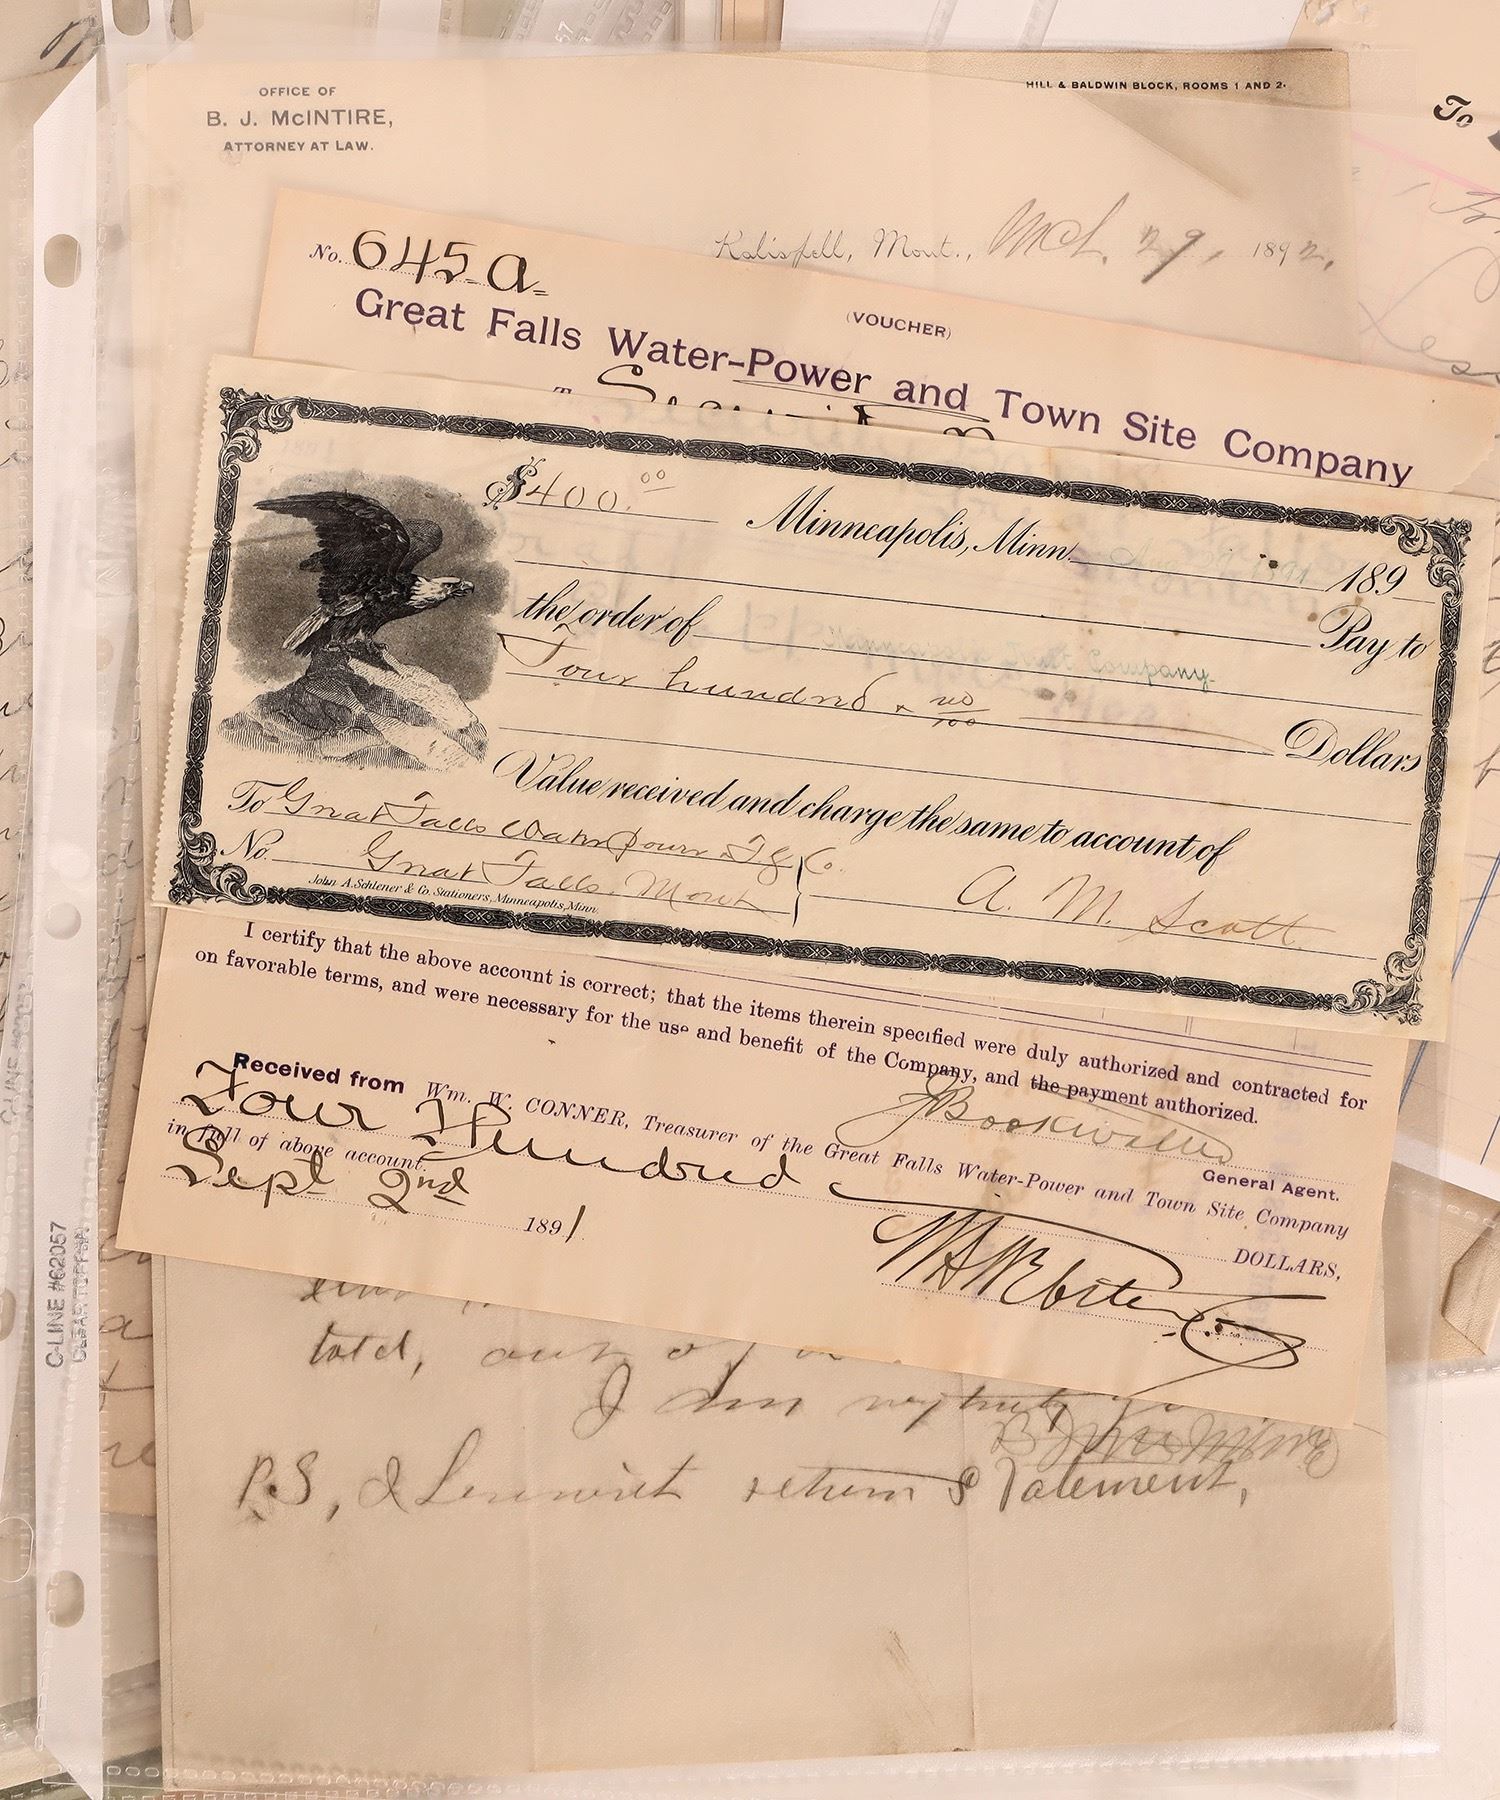 OFFICE OF
B. J. McINTIRE,
ATTORNEY AT LAW.
HILL & BALDWIN BLOCK, ROOMS 1 AND 2.
To
Kalispell, Mont., Mch. 29, 1892,
No. 645-a-
(VOUCHER)
Great Falls Water-Power and Town Site Company
$400.00
Minneapolis, Minn. 189
Pay to
the order of Company
Four hundred & no/100 Dollars
Value received and charge the same to account of
To Great Falls Water Power & T. S. Co.
No. Great Falls. Mont
A. M. Scott
John A. Schlener & Co. Stationers, Minneapolis, Minn.
I certify that the above account is correct; that the items therein specified were duly authorized and contracted for
on favorable terms, and were necessary for the use and benefit of the Company, and the payment authorized.
General Agent.
Received from Wm. W. CONNER, Treasurer of the Great Falls Water-Power and Town Site Company
Four Hundred DOLLARS,
in full of above account.
Sept 2nd 1891
told, out of
I am very truly
P.S, I herewith return Statement,
C-LINE #62057
CLEAR TOP